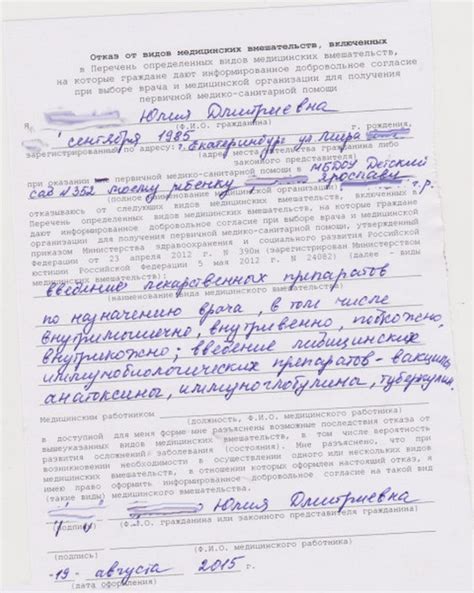 Отказ от видов медицинских вмешательств, включенных
в Перечень определенных видов медицинских вмешательств,
на которые граждане дают информированное добровольное согласие
при выборе врача и медицинской организации для получения
первичной медико-санитарной помощи
Я, Юлия Дмитриевна
(Ф.И.О. гражданина)
сентября 1985 г. рождения,
зарегистрированный по адресу: г. Екатеринбург ул Мира
(адрес места жительства гражданина либо
законного представителя)
при оказании первичной медико-санитарной помощи в МБДОУ Детский
сад №352 моему ребенку Ярославу
(полное наименование медицинской организации) г.р.
отказываюсь от следующих видов медицинских вмешательств, включенных в
Перечень определенных видов медицинских вмешательств, на которые граждане
дают информированное добровольное согласие при выборе врача и медицинской
организации для получения первичной медико-санитарной помощи, утвержденный
приказом Министерства здравоохранения и социального развития Российской
Федерации от 23 апреля 2012 г. N 390н (зарегистрирован Министерством
юстиции Российской Федерации 5 мая 2012 г. N 24082) (далее - виды
медицинских вмешательств):
введение лекарственных препаратов
(наименование вида медицинского вмешательства)
по назначению врача, в том числе
внутримышечно, внутривенно, подкожно,
внутрикожно; введение
иммунобиологических препаратов - вакцины,
анатоксины, иммуноглобулины, туберкулин.
Медицинским работником
(должность, Ф.И.О. медицинского работника)
в доступной для меня форме мне разъяснены возможные последствия отказа от
вышеуказанных видов медицинских вмешательств, в том числе вероятность
развития осложнений заболевания (состояния). Мне разъяснено, что при
возникновении необходимости в осуществлении одного или нескольких видов
медицинских вмешательств, в отношении которых оформлен настоящий отказ, я
имею право оформить информированное добровольное согласие на такой вид
(такие виды) медицинского вмешательства.
Юлия Дмитриевна
(подпись) (Ф.И.О. гражданина или законного представителя гражданина)
(подпись) (Ф.И.О. медицинского работника)
"19" августа 2015 г.
(дата оформления)